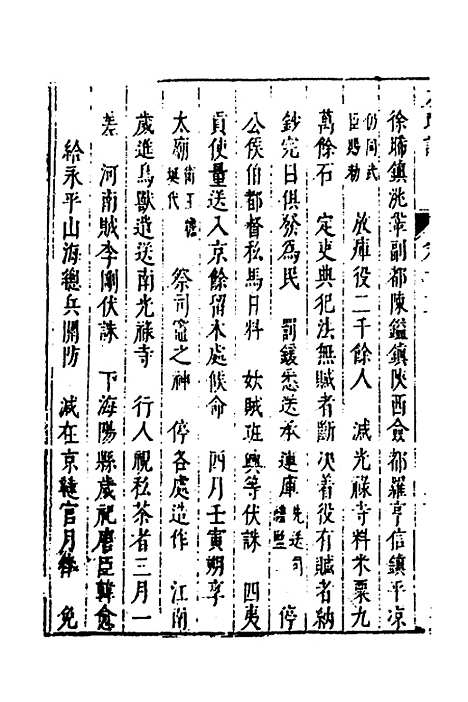 徐琦鎮洮等副都陳鎰鎮陝西僉都羅亨信鎮平凉
仍同武臣賜勑　放庫役二千餘人　減光祿寺料米粟九
萬餘石　定吏典犯法無贓者斷決着役有贓者納
鈔完日俱發為民　罰鍰悉送承運庫　先送司　停
公侯伯都督私馬日料　妖賊班興等伏誅　四夷
貢使量送入京餘留本處候命　四月壬寅朔享
太廟　衛王瞻埏代　祭司竈之神　停各處造作　江南
歲進鳥獸造送南光祿寺　行人視私茶者三月一
差　河南賊李剛伏誅　下海陽縣歲祀唐臣韓愈
給永平山海總兵關防　減在京雜官月俸　免